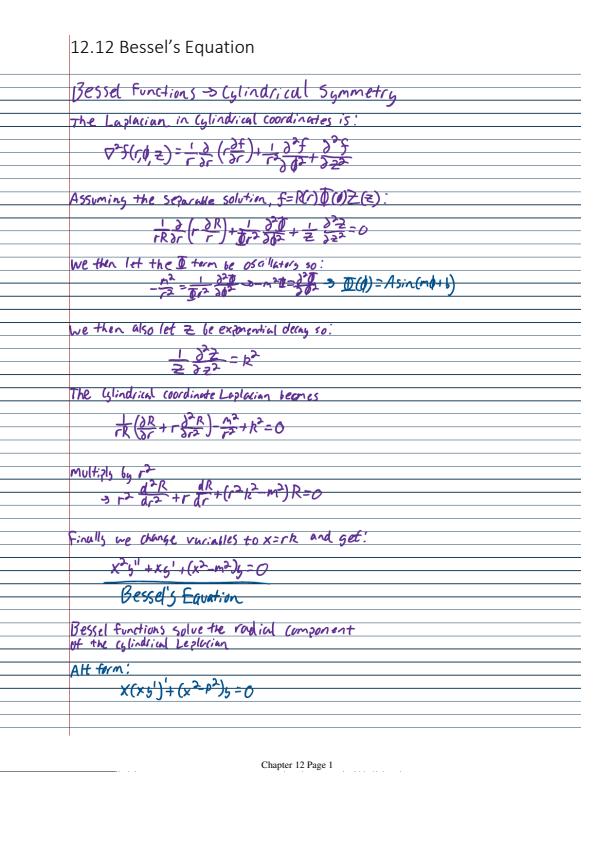 12.12 Bessel's Equation
Bessel Functions → Cylindrical Symmetry
The Laplacian in Cylindrical coordinates is:
∇²f(r,ϕ,z) = 1/r ∂/∂r (r ∂f/∂r) + 1/r² ∂²f/∂ϕ² + ∂²f/∂z²
Assuming the separable solution, f=R(r)Φ(ϕ)Z(z):
1/(rR) ∂/∂r (r ∂R/r) + 1/(Φr²) ∂²Φ/∂ϕ² + 1/Z ∂²Z/∂z² = 0
We then let the Φ term be oscillatory so:
-m²/r² = 1/(Φr²) ∂²Φ/∂ϕ² → -m²Φ = ∂²Φ/∂ϕ² → Φ(ϕ) = Asin(mϕ+b)
We then also let Z be exponential decay so:
1/Z ∂²Z/∂z² = k²
The Cylindrical coordinate Laplacian becomes
1/(rR) (∂R/∂r + r ∂²R/∂r²) - m²/r² + k² = 0
Multiply by r²
→ r² d²R/dr² + r dR/dr + (r²k²-m²)R = 0
Finally we change variables to x=rk and get:
x²y'' + xy' + (x²-m²)y = 0
Bessel's Equation
Bessel functions solve the radial component
of the cylindrical Leplacian
Alt form:
x(xy')' + (x²-p²)y = 0
Chapter 12 Page 1